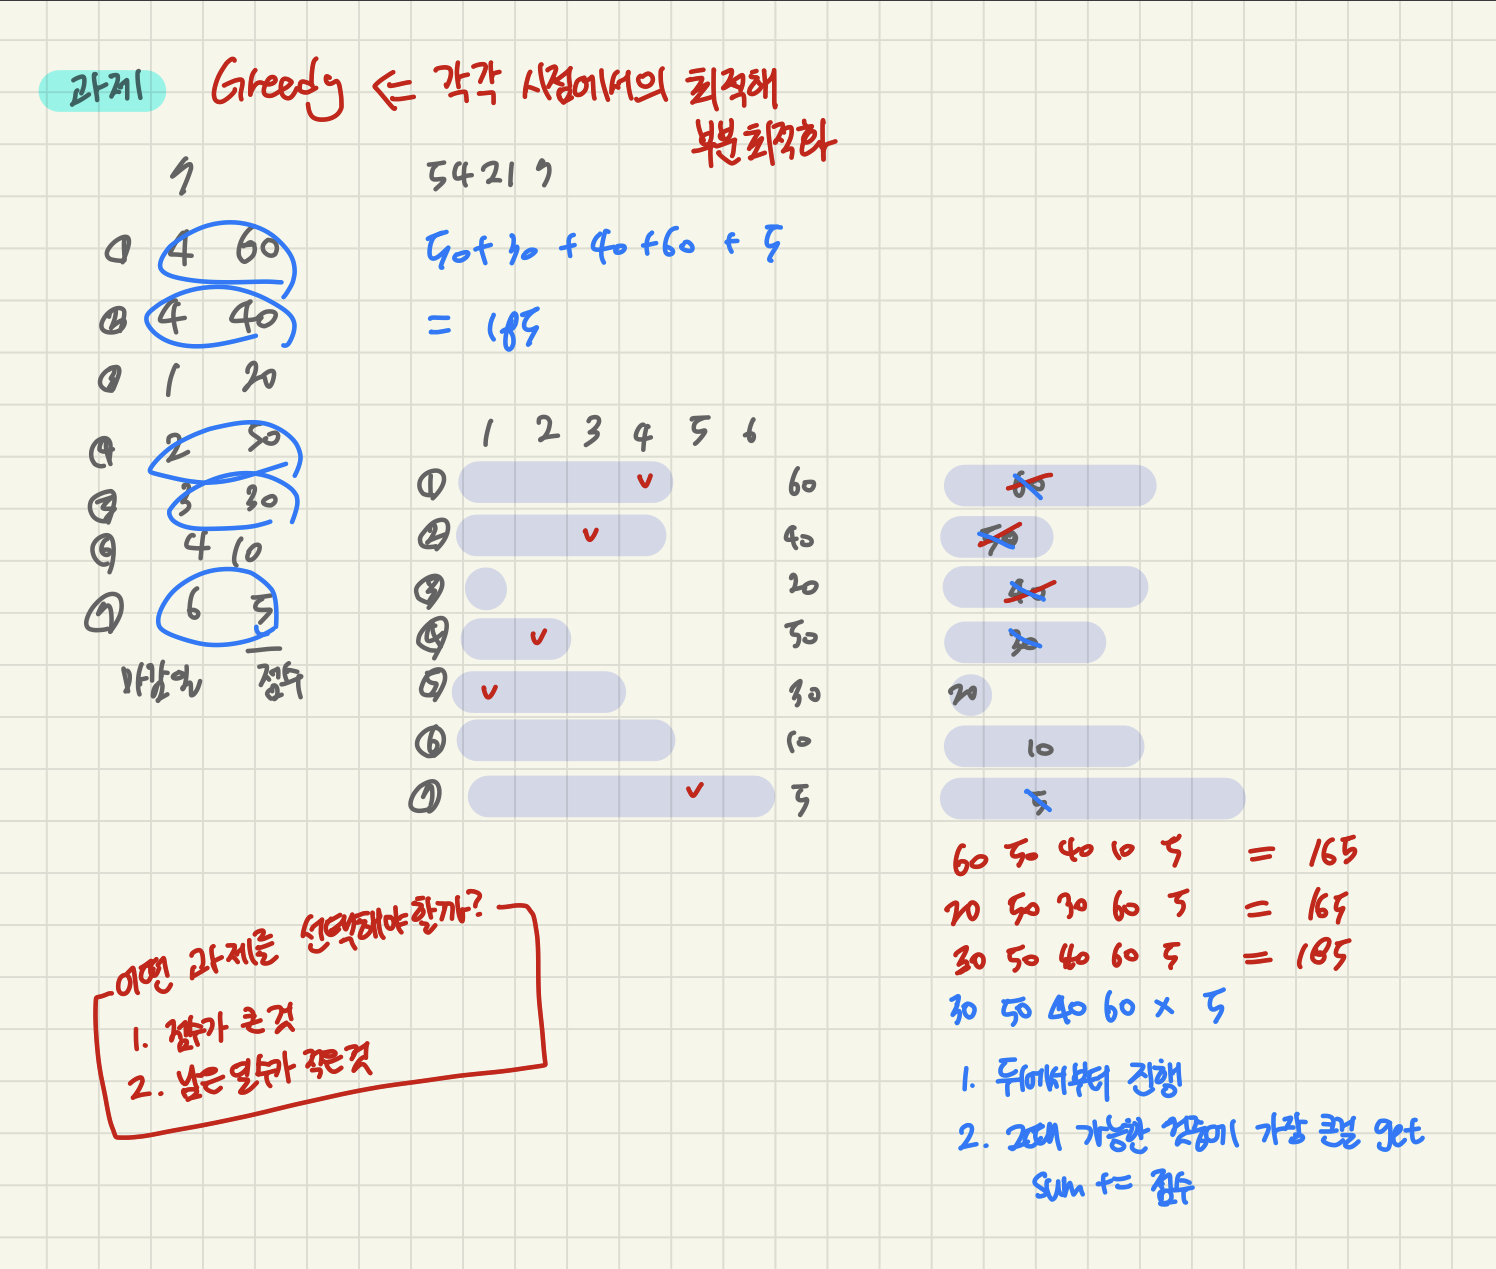 과제 Greedy ⇐ 각각 시점에서의 최적해
부분최적화
7 5 4 2 1 7
① 4 60 50 + 30 + 40 + 60 + 5
② 4 40 = 185
③ 1 20
④ 2 50
⑤ 3 30
⑥ 4 10
⑦ 6 5
마감일 점수
1 2 3 4 5 6
① v 60 60
② v 40 50
③ 20 40
④ v 50 30
⑤ v 30 20
⑥ 10 10
⑦ v 5 5
60 50 40 10 5 = 165
20 50 30 60 5 = 165
30 50 40 60 5 = 185
30 50 40 60 x 5
어떤 과제를 선택해야 할까?
1. 점수가 큰 것
2. 남은 일수가 작은것
1. 뒤에서부터 진행
2. 그때 가능한 것중에 가장 큰걸 get
sum += 점수